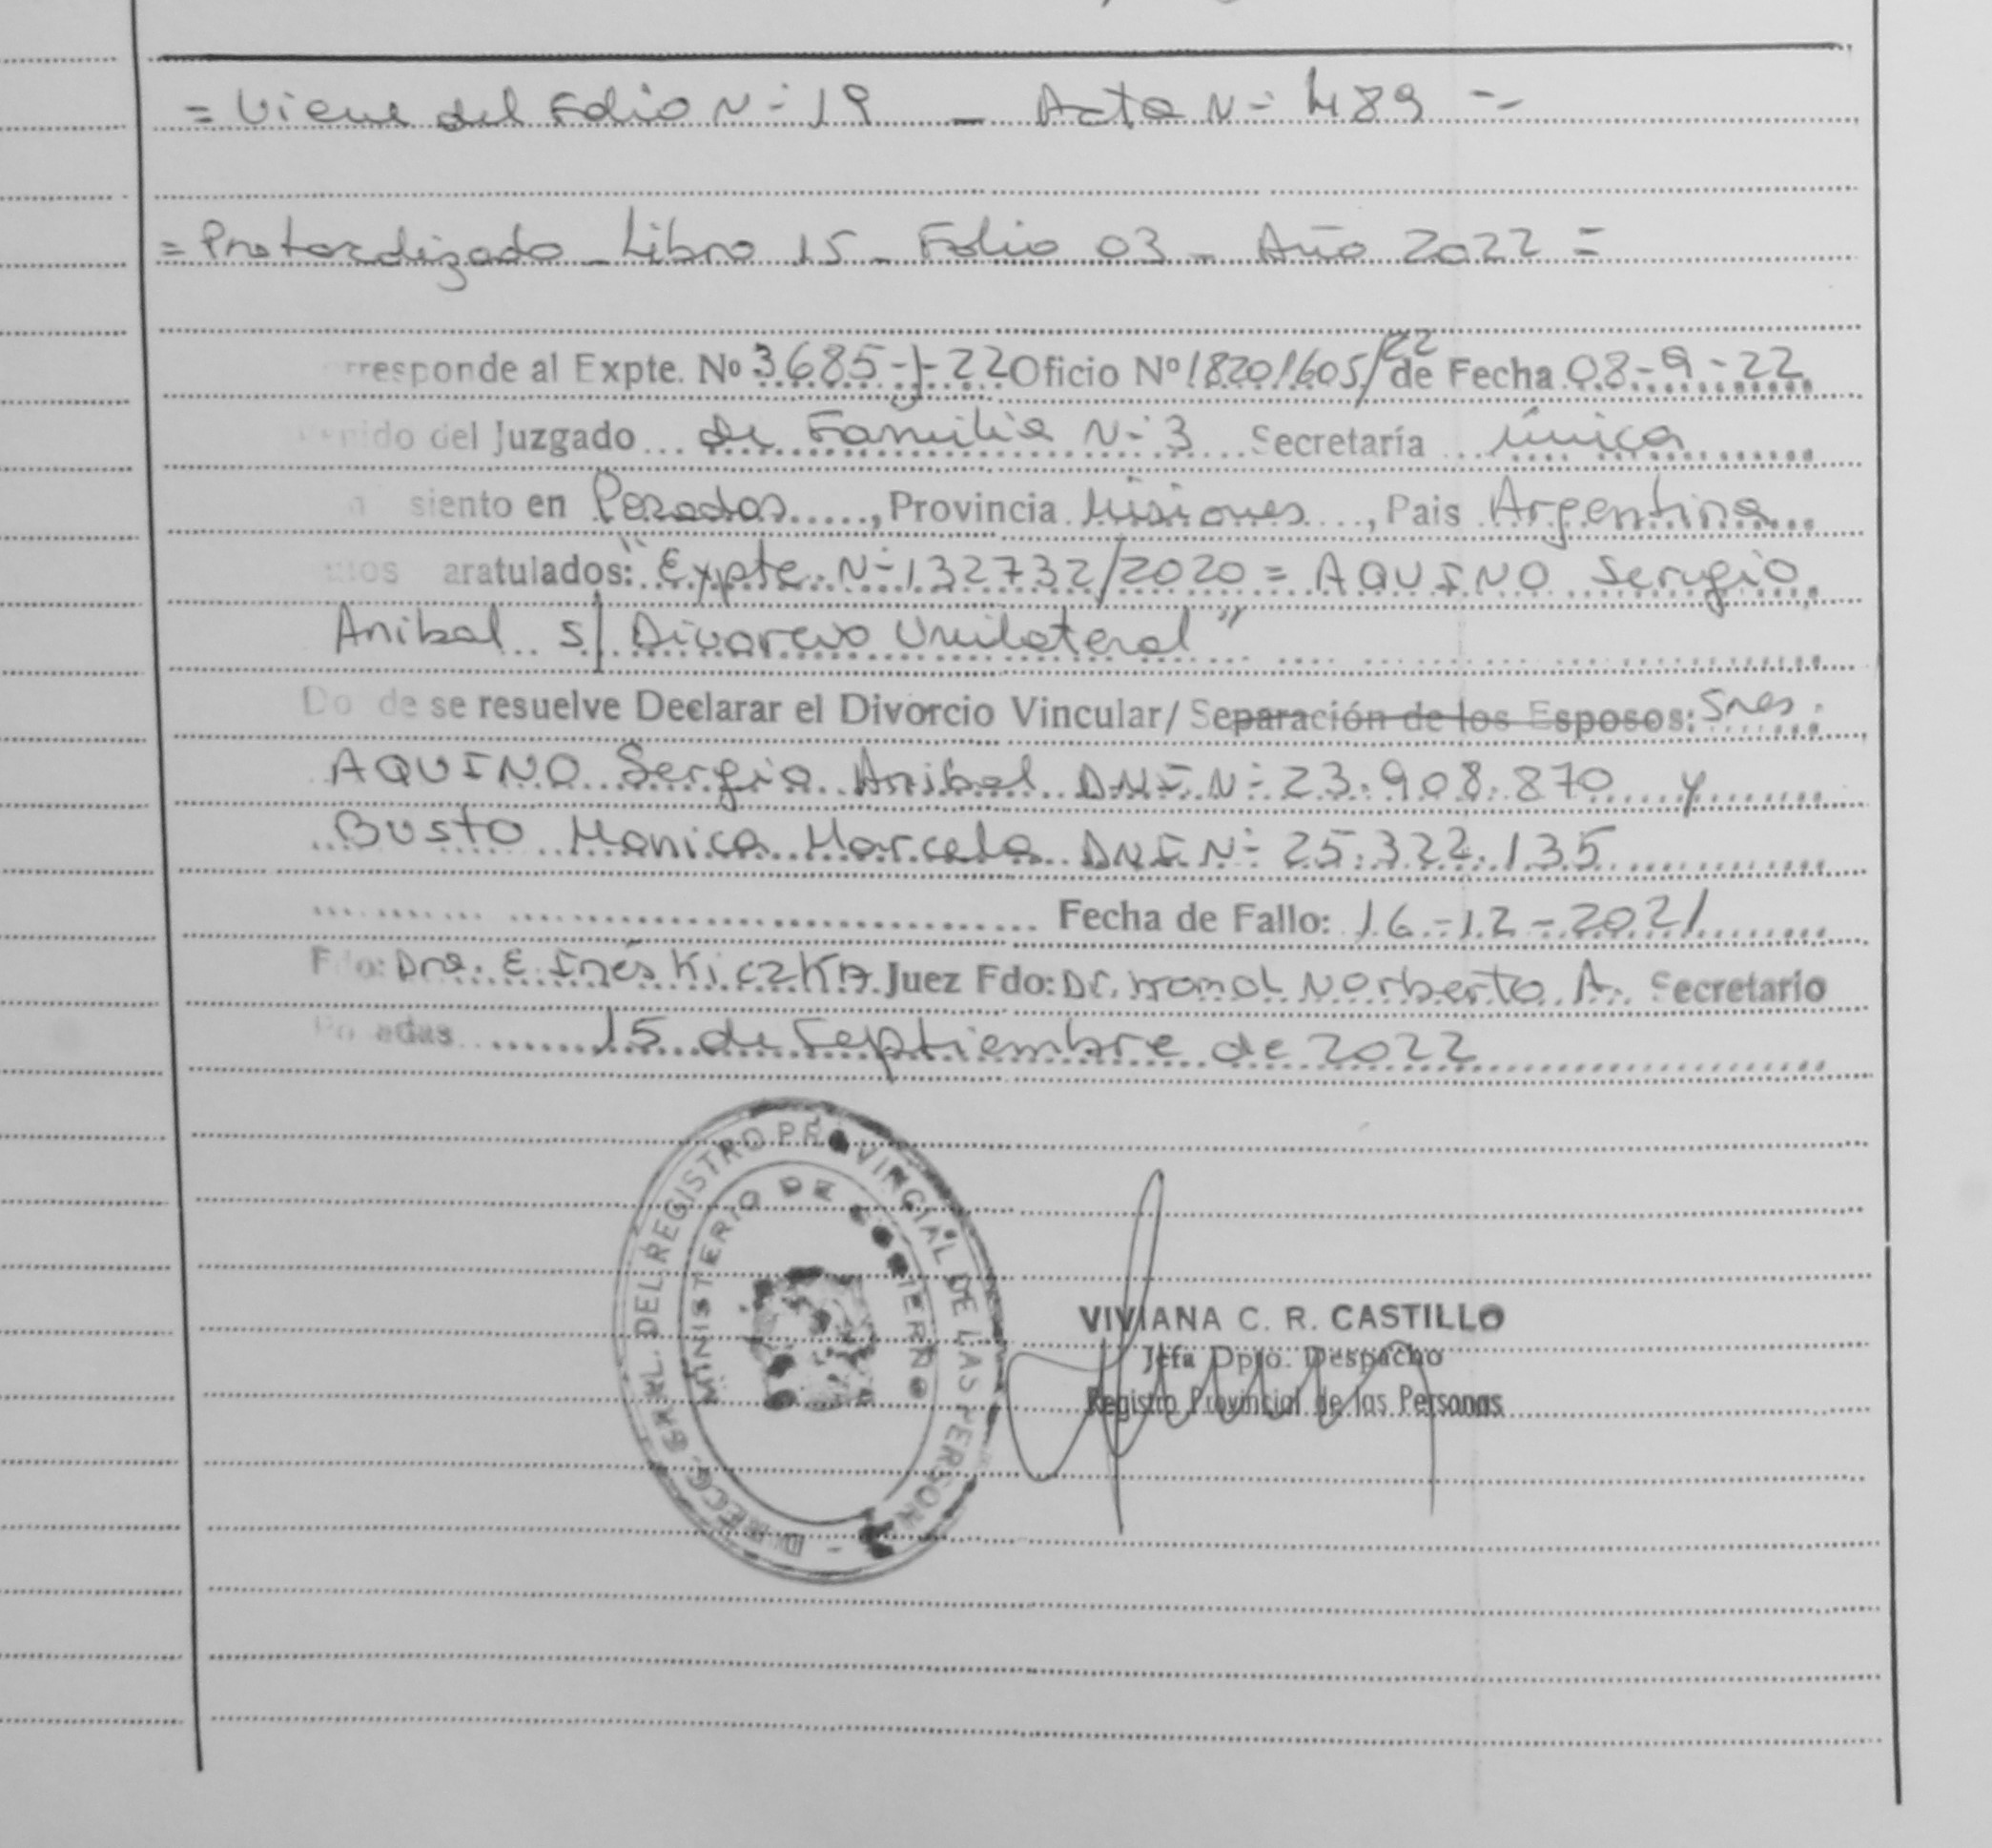 = Viene del Folio N- 19 - Acta N- 489 =
= Protocolizado - Libro 15 - Folio 03 - Año 2022 =
rresponde al Expte. No 3685-J-22 Oficio Nº 18201605/22 de Fecha 08-9-22
enido del Juzgado de Familia N- 3 Secretaría única
siento en Posadas, Provincia Misiones, Pais Argentina
aratulados: "Expte. N- 132732/2020 = AQUINO Sergio
Anibal s/ Divorcio Unilateral"
Do de se resuelve Declarar el Divorcio Vincular/ Separación de los Esposos: Sres.
AQUINO Sergio Anibal DNI N- 23.908.870 y
BUSTO Monica Marcela DNI N- 25.322.135
Fecha de Fallo: 16-12-2021
Fdo: Dra. E. Inés Kiczka Juez Fdo: Dr. Norberto A. Secretario
Posadas 15 de Septiembre de 2022
DIRECC. GRAL. DEL REGISTRO PROVINCIAL DE LAS PERSON
MINISTERIO DE GOBIERNO
VIVIANA C. R. CASTILLO
Jefa Dpto. Despacho
Registro Provincial de las Personas